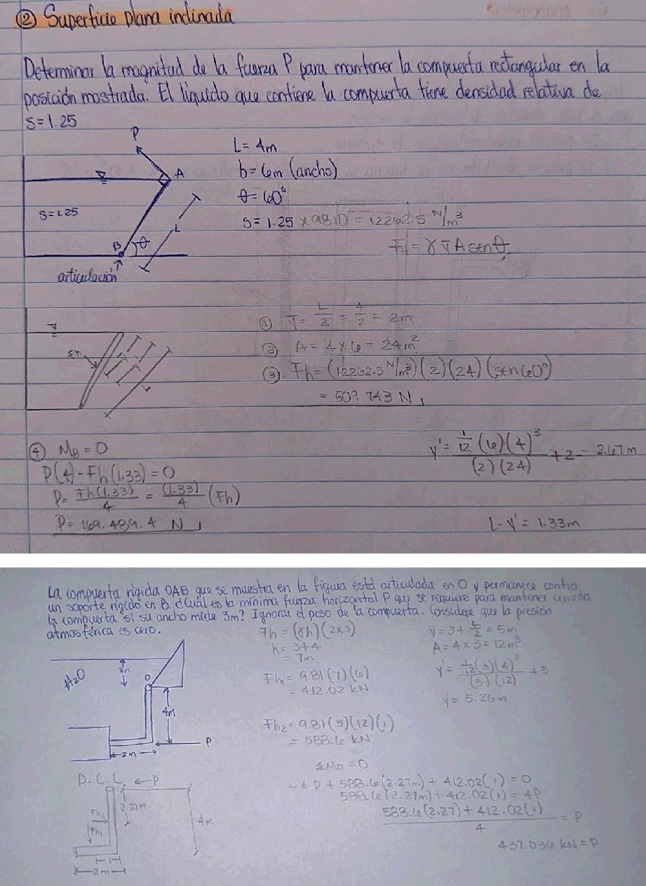 ② Superficie plana inclinada
Determinar la magnitud de la fuerza P para mantener la compuerta rectangular en la
posición mostrada. El liquido que contiene la compuerta tiene densidad relativa de
s=1.25
P
A
S=1.25
B
θ
L
articulación
L= 4m
b=6m (ancho)
θ=60°
S= 1.25 x9810 = 12262.5 N/m³
Fh = γ ȳ A senθ
① ȳ= L/2 = 4/2 = 2m
② A= 4x6 = 24m²
③ Fh= (12262.5 N/m³)(2)(24)(sen60°)
= 509.743 N
④ MB=0
P(4)-Fh(1.33)=0
P= Fh(1.33)/4 = (1.33)/4 (Fh)
P= 169.489.4 N
y'= 1/12 (6)(4)³/(2)(24) +2= 2.67m
L-y'= 1.33m
La compuerta rígida OAB que se muestra en la figura está articulada en O y permanece contra
un soporte rígido en B. ¿Cuál es la mínima fuerza horizontal P que se requiere para mantener cerrada
la compuerta si su ancho mide 3m? Ignorar el peso de la compuerta. Considere que la presión
atmosférica es cero.
H₂O
3m
O
4m
P
2m
Fh = (γh)(2x3)
h= 3+4
= 7m
Fh= 9.81(7)(6)
= 412.02 kN
Fh₂= 9.81(5)(12)(1)
= 588.6 kN
ȳ= 3+ L/2 = 5m
A= 4x3= 12m²
y'= 1/12(3)(4)³/(5)(12) +5
y'= 5.26m
D.C.L.
P
2.27m
4m
1
2m
ΣMo =0
-4P+588.6(2.27m)+412.02(1)=0
588.6(2.27m)+412.02(1)=4P
588.6(2.27)+412.02(1)/4 = P
437.036 kN=P